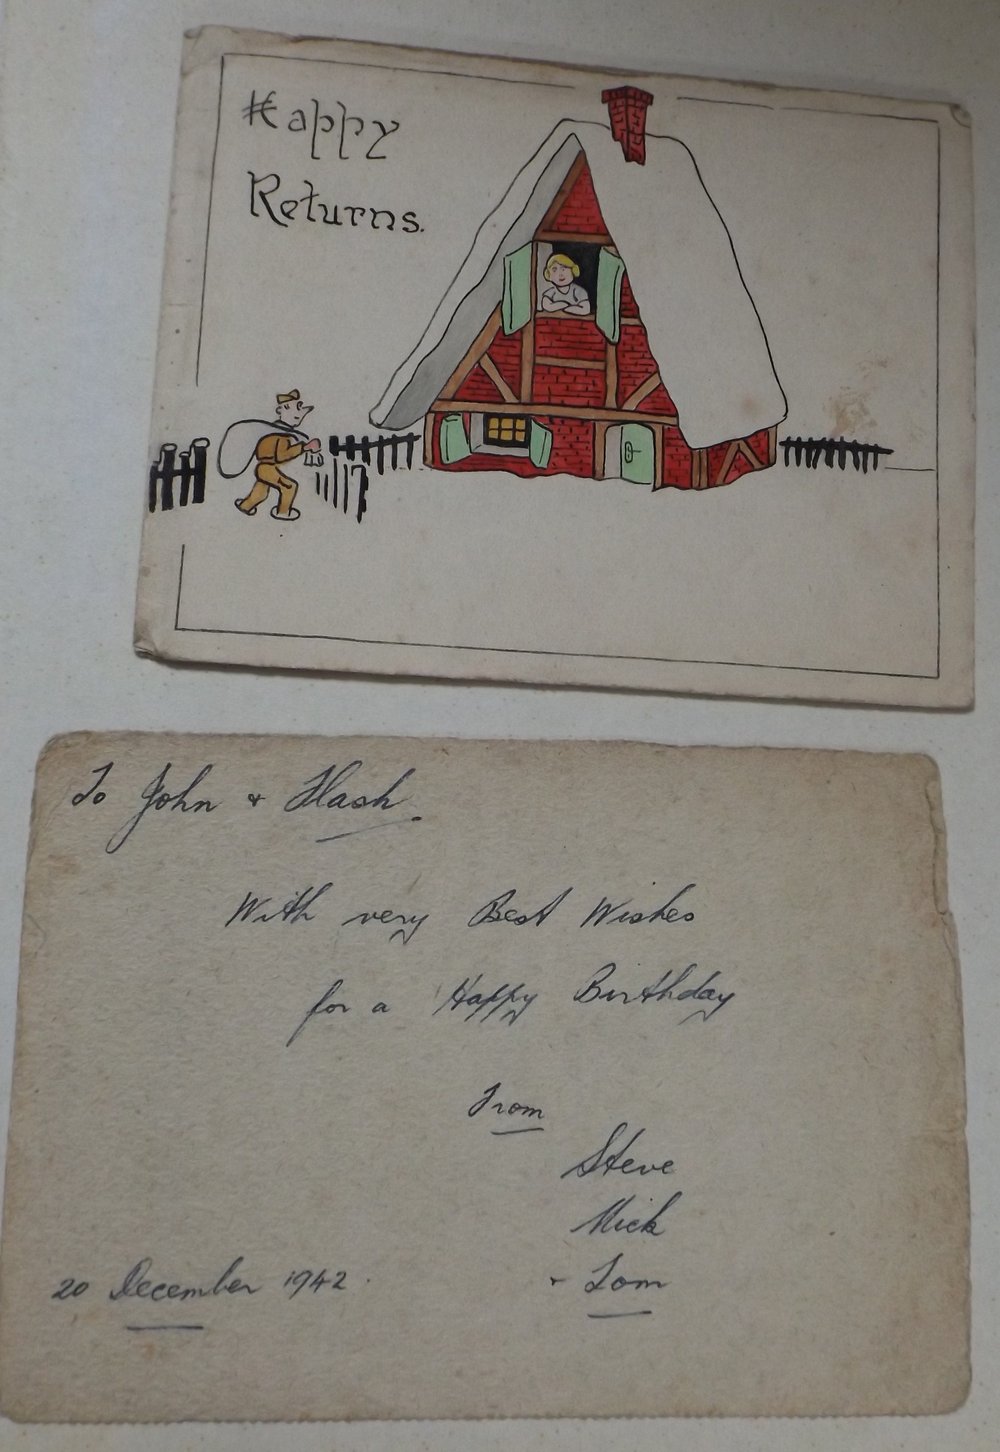 Happy
Returns.
To John & Flash.
With very Best Wishes
for a Happy Birthday
From
Steve
Mick
& Tom
20 December 1942.